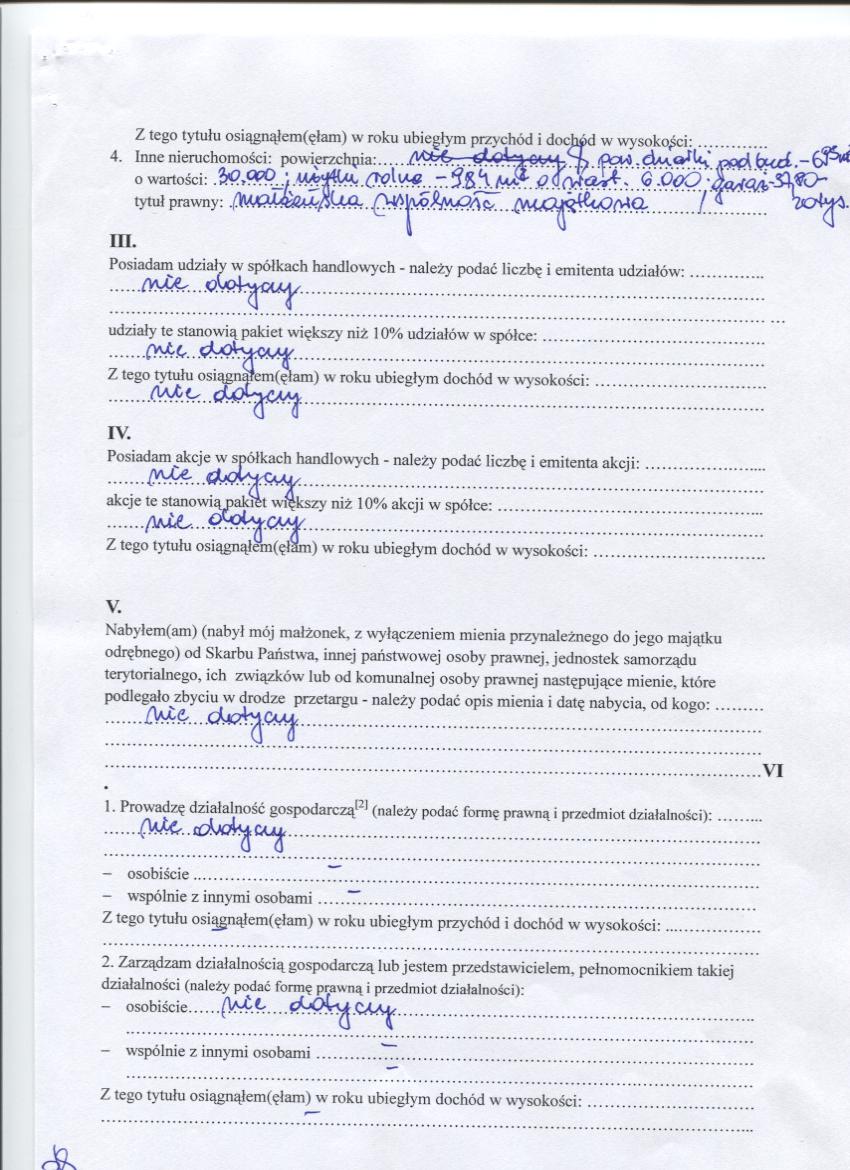 Z tego tytułu osiągnąłem(ęłam) w roku ubiegłym przychód i dochód w wysokości: ............
4. Inne nieruchomości: powierzchnia: nie dotyczy pow. działki pod bud. - 695 m²
o wartości: 30.000; użytki rolne - 984 m² o wart. 6.000; garaż - 37,80 -
tytuł prawny: małżeńska wspólność majątkowa / 20 tys.
III.
Posiadam udziały w spółkach handlowych - należy podać liczbę i emitenta udziałów: ..............
nie dotyczy
udziały te stanowią pakiet większy niż 10% udziałów w spółce: ..............
nie dotyczy
Z tego tytułu osiągnąłem(ęłam) w roku ubiegłym dochód w wysokości: ..............
nie dotyczy
IV.
Posiadam akcje w spółkach handlowych - należy podać liczbę i emitenta akcji: ..............
nie dotyczy
akcje te stanowią pakiet większy niż 10% akcji w spółce: ..............
nie dotyczy
Z tego tytułu osiągnąłem(ęłam) w roku ubiegłym dochód w wysokości: ..............
V.
Nabyłem(am) (nabył mój małżonek, z wyłączeniem mienia przynależnego do jego majątku
odrębnego) od Skarbu Państwa, innej państwowej osoby prawnej, jednostek samorządu
terytorialnego, ich związków lub od komunalnej osoby prawnej następujące mienie, które
podlegało zbyciu w drodze przetargu - należy podać opis mienia i datę nabycia, od kogo: .........
nie dotyczy
VI
.
1. Prowadzę działalność gospodarczą[2] (należy podać formę prawną i przedmiot działalności): .........
nie dotyczy
– osobiście .............. –
– wspólnie z innymi osobami .............. –
Z tego tytułu osiągnąłem(ęłam) w roku ubiegłym przychód i dochód w wysokości: ..............
–
2. Zarządzam działalnością gospodarczą lub jestem przedstawicielem, pełnomocnikiem takiej
działalności (należy podać formę prawną i przedmiot działalności):
– osobiście nie dotyczy
– wspólnie z innymi osobami .............. –
–
Z tego tytułu osiągnąłem(ęłam) w roku ubiegłym dochód w wysokości: ..............
–